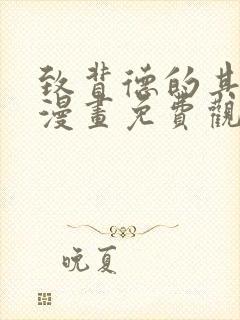 致背德的其
漫畫免費觀
晚夏